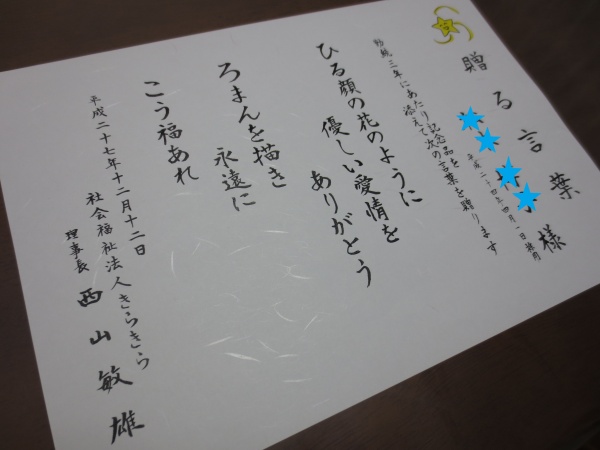 贈る言葉
様
平成二十四年四月一日採用
勤続三年にあたり記念品を
添えて次の言葉を贈ります
ひる顔の花のように
優しい愛情を
ありがとう
ろまんを描き
永遠に
こう福あれ
平成二十七年十二月十二日
社会福祉法人きらきら
理事長 西山敏雄